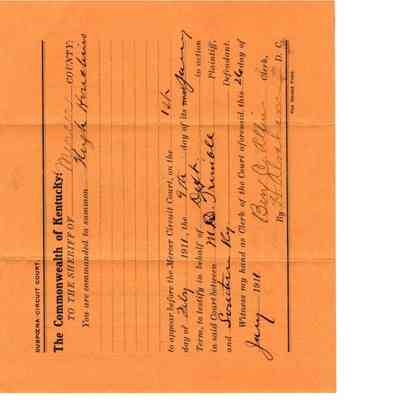 SUBPOENA-CIRCUIT COURT.
The Commonwealth of Kentucky:
TO THE SHERIFF OF Mercer COUNTY:
You are commanded to summon Hugh
to appear before the Mercer Circuit Court, on the 1st
day of Feby 1911, the 9th day of its Jany
Term, to testify in behalf of Deft in action
in said Court between M.D. Trimble Plaintiff,
and Southern Ry Defendant.
Witness my hand as Clerk of the Court aforesaid, this 26 day of
Jany 1911 Ben C. Allin Clerk,
By D. C.